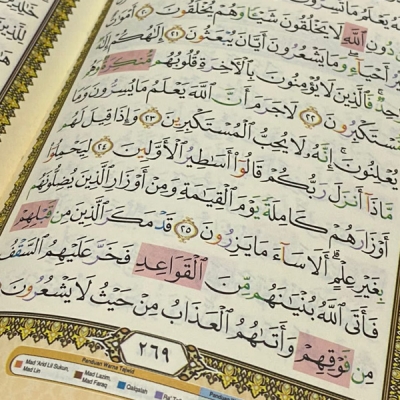 دُونِ ٱللَّهِ لَا يَخْلُقُونَ شَيْـًٔا وَهُمْ يُخْلَقُونَ ٢٠ أَمْوَٰتٌ
غَيْرُ أَحْيَآءٍ وَمَا يَشْعُرُونَ أَيَّانَ يُبْعَثُونَ ٢١ إِلَٰهُكُمْ إِلَٰهٌ
وَٰحِدٌ فَٱلَّذِينَ لَا يُؤْمِنُونَ بِٱلْأَخِرَةِ قُلُوبُهُم مُّنكِرَةٌ وَهُم
مُّسْتَكْبِرُونَ ٢٢ لَا جَرَمَ أَنَّ ٱللَّهَ يَعْلَمُ مَا يُسِرُّونَ وَمَا
يُعْلِنُونَ إِنَّهُۥ لَا يُحِبُّ ٱلْمُسْتَكْبِرِينَ ٢٣ وَإِذَا قِيلَ لَهُم
مَّاذَآ أَنزَلَ رَبُّكُمْ قَالُوٓا۟ أَسَٰطِيرُ ٱلْأَوَّلِينَ ٢٤ لِيَحْمِلُوٓا۟
أَوْزَارَهُمْ كَامِلَةً يَوْمَ ٱلْقِيَٰمَةِ وَمِنْ أَوْزَارِ ٱلَّذِينَ يُضِلُّونَهُم
بِغَيْرِ عِلْمٍ أَلَا سَآءَ مَا يَزِرُونَ ٢٥ قَدْ مَكَرَ ٱلَّذِينَ مِن قَبْلِهِمْ
فَأَتَى ٱللَّهُ بُنْيَٰنَهُم مِّنَ ٱلْقَوَاعِدِ فَخَرَّ عَلَيْهِمُ ٱلسَّقْفُ
مِن فَوْقِهِمْ وَأَتَىٰهُمُ ٱلْعَذَابُ مِنْ حَيْثُ لَا يَشْعُرُونَ
٢٦٩
Panduan Warna Tajwid
Mad 'Arid Lil Sukun, Mad Lazim, Qalqalah
Mad Lin Mad Faraq